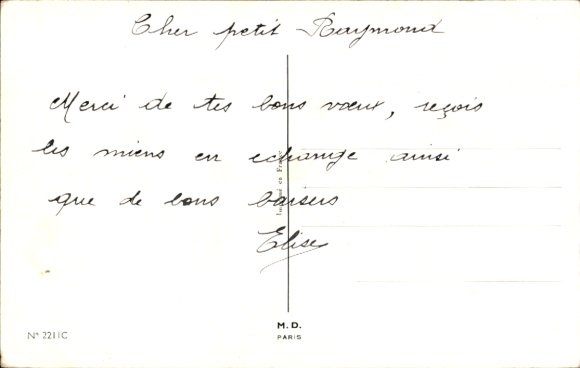 Cher petit Raymond
Merci de tes bons vœux, reçois
les miens en echange ainsi
que de bons baisers
Elise
Imprimé en France
M. D.
PARIS
N° 2211C